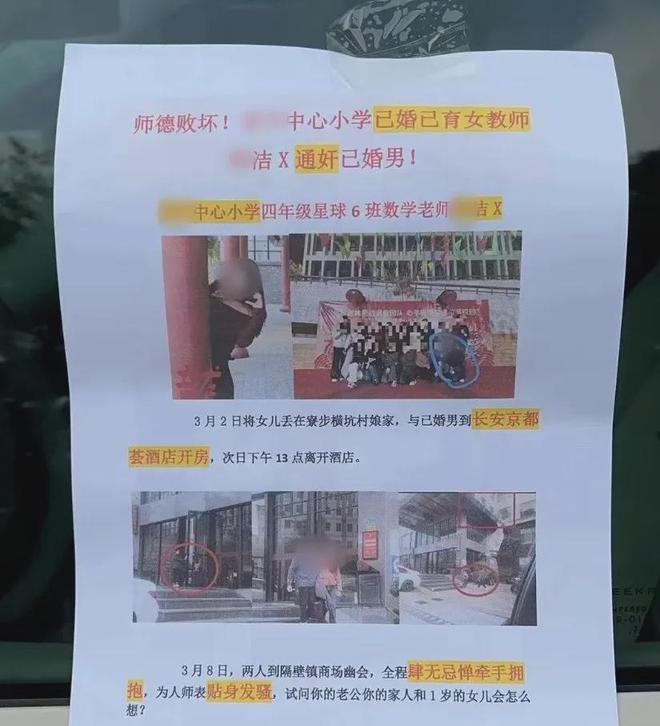 师德败坏！中心小学已婚已育女教师
洁X通奸已婚男！
中心小学四年级星球6班数学老师 洁X
3月2日将女儿丢在寮步横坑村娘家，与已婚男到长安京都
荟酒店开房，次日下午13点离开酒店。
3月8日，两人到隔壁镇商场幽会，全程肆无忌惮牵手拥
抱，为人师表贴身发骚，试问你的老公你的家人和1岁的女儿会怎么
想？